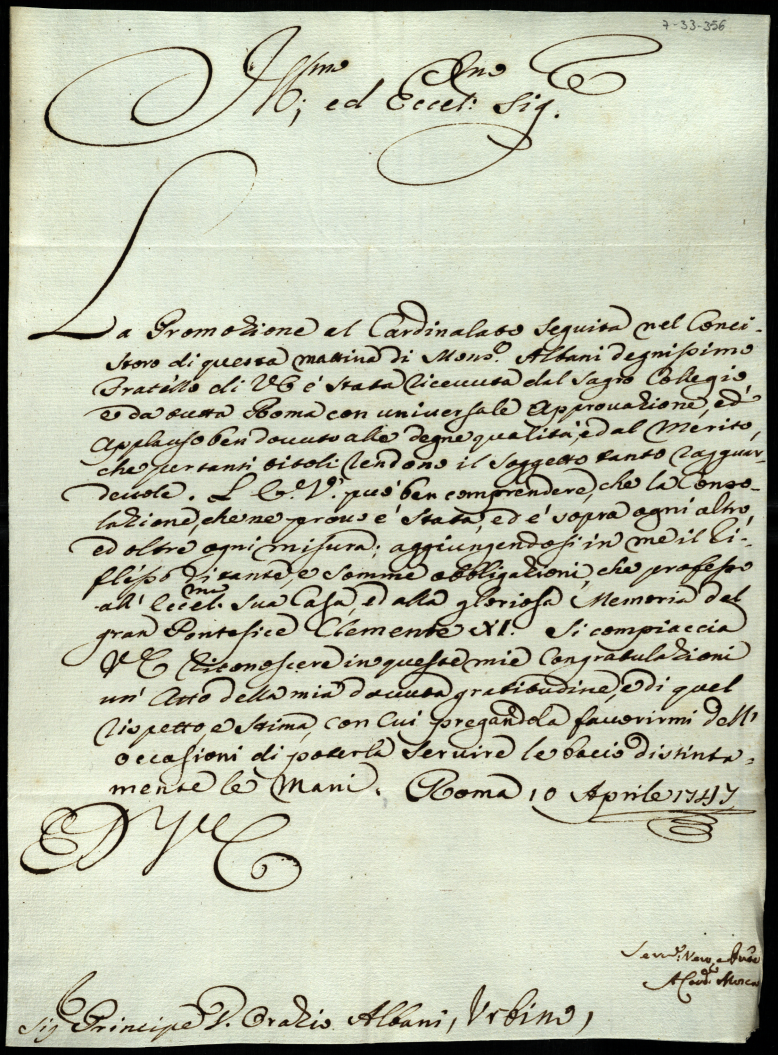 7-33-356
Ill.mo ed Eccel. Sig.
La Promozione al Cardinalato seguita nel Conci-
storo di questa mattina di Mons.e Albani degnissimo
Fratello di VE è stata ricevuta dal Sagro Collegio,
e da tutta Roma con universale Approvazione, ed
Applauso ben dovuto alle degne qualità, ed al Merito,
che per tanti titoli rendono il soggetto tanto raguar-
devole. L' E.V. può ben comprendere, che la Conso-
lazione, che ne provo è stata, ed è sopra ogni altro,
ed oltre ogni misura; aggiungendosi in me il Ri-
flesso di tante, e somme obbligazioni, che professo
all' Eccel.ma sua Casa, ed alla gloriosa Memoria del
gran Pontefice Clemente XI. Si compiaccia
VE riconoscere in queste mie Congratulazioni
un' Atto della mia dovuta gratitudine, e di quel
rispetto, e stima, con cui pregandola favorirmi dell'
occasioni di poterla servire le bacio distinta-
mente le Mani. Roma 10 Aprile 1747
D VE
Serv.e Vero
A Card. Mosca
Sig Principe D. Orazio Albani, Urbino,